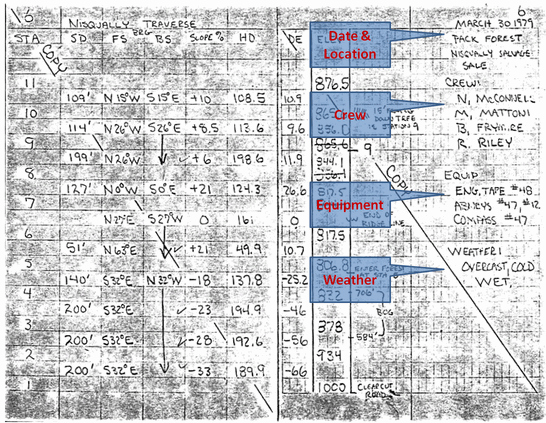 5
NISQUALLY TRAVERSE
STA SD FS BRG BS SLOPE % HD
COPY
11
109' N15°W S15°E +10 108.5
10
114' N26°W S26°E +8.5 113.6
9
199' N26°W +6 198.6
8
127' N0°W S0°E +21 124.3
N27°E S27°W 0 161
6
51' N63°E +21 49.9
5
140' S32°E N32°W -18 137.8
4
200' S32°E -23 194.9
3
200' S32°E -28 192.6
2
200' S32°E -33 189.9
1
6
DE
876.5
10.9
9.6 DOWN TREE
STATION 9
865.6 9
11.9 844.1
COPY
26.6 817.5
0 END OF
RIDGE LINE
817.5
10.7
306.8 RIVER FOREST
-25.2
332 706'
-46 BOG
378
584'
-56
934
-66
1000 CLEARCUT
ROAD
Date &
Location
Crew
Equipment
Weather
MARCH 30 1979
PACK FOREST
NISQUALLY SALVAGE
SALE
CREW:
N. McCONNELL
M. MATTONI
R. RILEY
EQUIP
ENG. TAPE #48
ABNEYS #47, #12
COMPASS #47
WEATHER:
OVERCAST, COLD
WET.